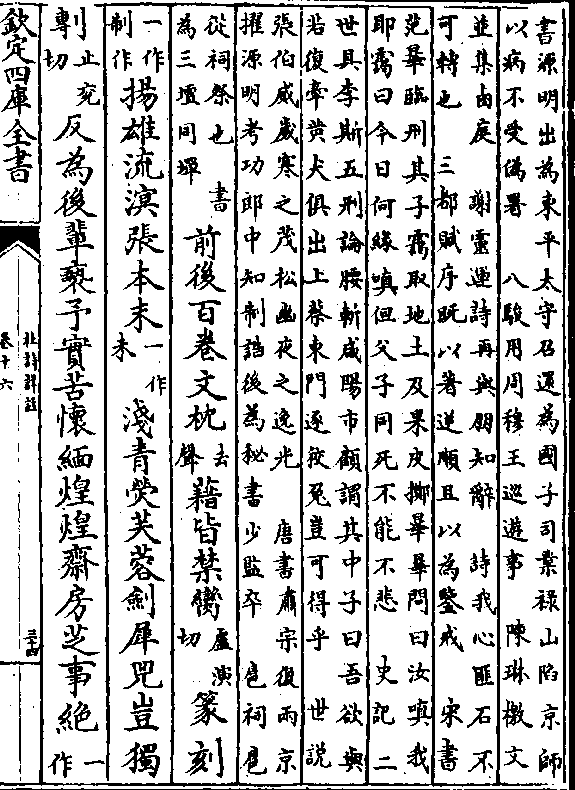 書源明出為東平太守召還為國子司業祿山陷京師
以病不受偽署　八駿用周穆王巡遊事　陳琳檄文
並集鹵庭　謝靈運詩再與朋知辭　詩我心匪石不
可轉也　三都賦序既以著逆順且以為鑒戒　宋書
范曄臨刑其子靄取地土及果皮擲曄曄問曰汝嗔我
耶靄曰今日何緣嗔但父子同死不能不悲　史記二
世具李斯五刑論腰斬咸陽市顧謂其中子曰吾欲與
若復牽黄犬俱出上蔡東門逐狡兔豈可得乎　世說
張伯威歲寒之茂松幽夜之逸光　唐書肅宗復兩京
擢源明考功郎中知制誥後為秘書少監卒　巵祠巵
從祠祭也　書
為三壇同墠
前後百卷文枕去聲藉皆禁臠盧演切篆刻
一作制作揚雄流溟張本末一作未淺青熒芙蓉劍犀兕豈獨
剸止兖專切反為後輩褻予實苦懷緬煌煌齋房芝事絶一作
欽定四庫全書
杜詩詳註
卷十六
三十四